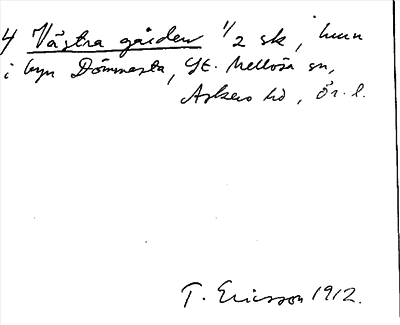 4 Västra gården 1/2 sk, hmn
i byn Dömmesta, St. Mellösa sn,
Askers hd, Ör. l.
T. Ericsson 1912.